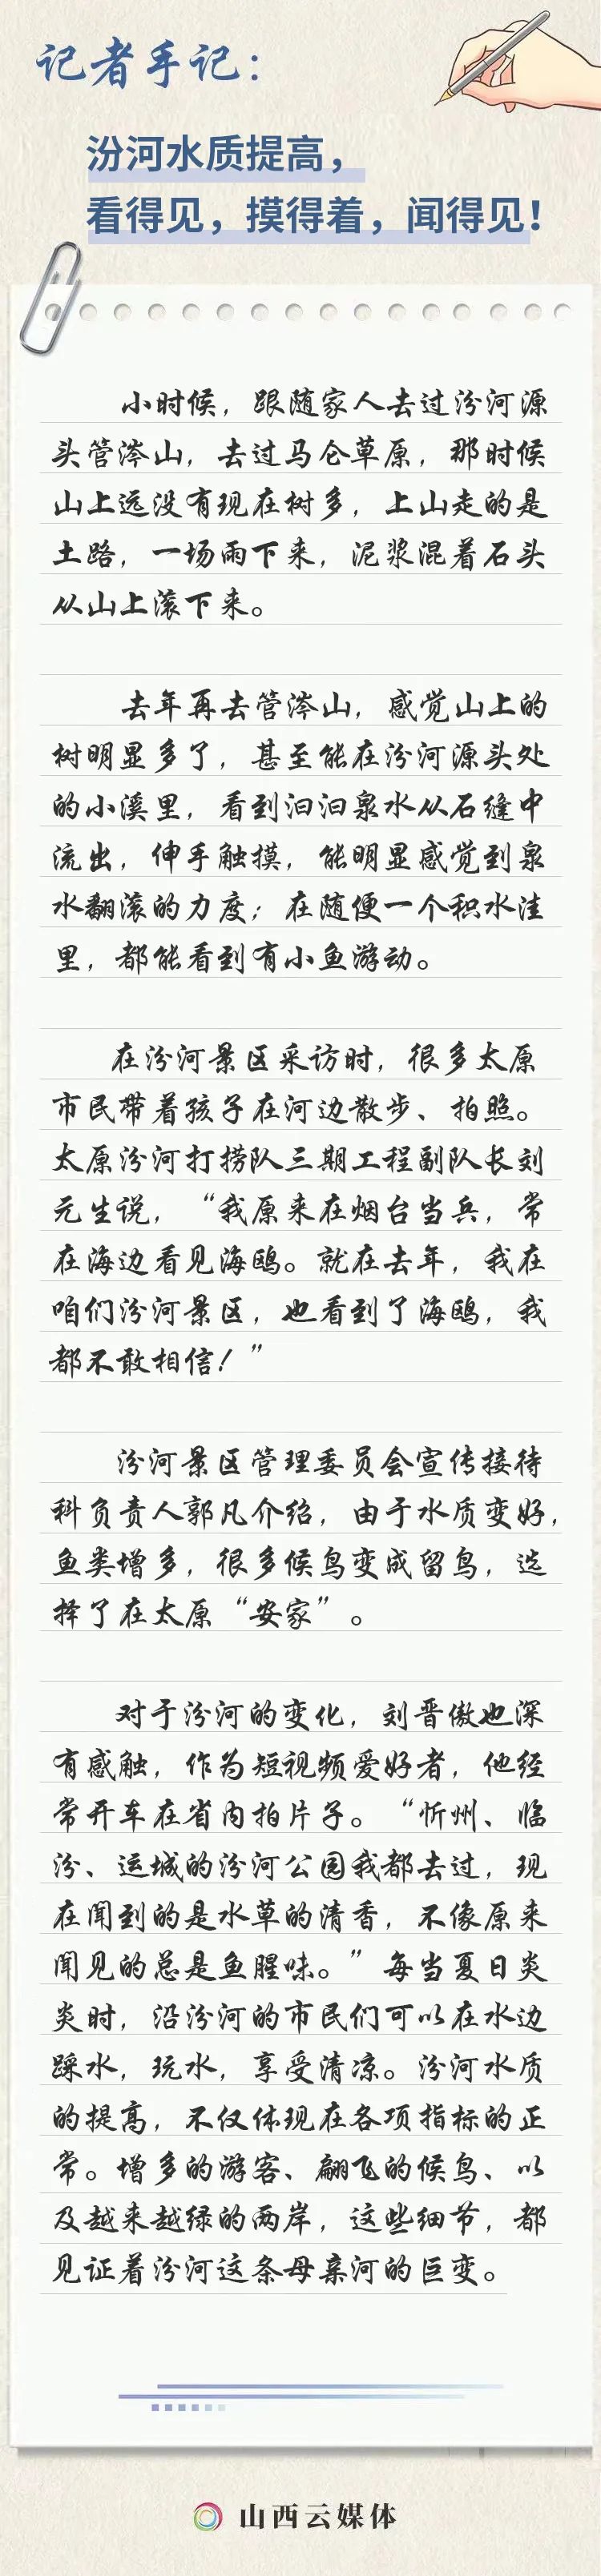 记者手记：
汾河水质提高，
看得见，摸得着，闻得见！
小时候，跟随家人去过汾河源
头管涔山，去过马仑草原，那时候
山上远没有现在树多，上山走的是
土路，一场雨下来，泥浆混着石头
从山上滚下来。
去年再去管涔山，感觉山上的
树明显多了，甚至能在汾河源头处
的小溪里，看到汩汩泉水从石缝中
流出，伸手触摸，能明显感觉到泉
水翻滚的力度；在随便一个积水洼
里，都能看到有小鱼游动。
在汾河景区采访时，很多太原
市民带着孩子在河边散步、拍照。
太原汾河打捞队三期工程副队长刘
元生说，“我原来在烟台当兵，常
在海边看见海鸥。就在去年，我在
咱们汾河景区，也看到了海鸥，我
都不敢相信！”
汾河景区管理委员会宣传接待
科负责人郭凡介绍，由于水质变好，
鱼类增多，很多候鸟变成留鸟，选
择了在太原“安家”。
对于汾河的变化，刘晋傲也深
有感触，作为短视频爱好者，他经
常开车在省内拍片子。“忻州、临
汾、运城的汾河公园我都去过，现
在闻到的是水草的清香，不像原来
闻见的总是鱼腥味。”每当夏日炎
炎时，沿汾河的市民们可以在水边
踩水，玩水，享受清凉。汾河水质
的提高，不仅体现在各项指标的正
常。增多的游客、翩飞的候鸟、以
及越来越绿的两岸，这些细节，都
见证着汾河这条母亲河的巨变。
山西云媒体